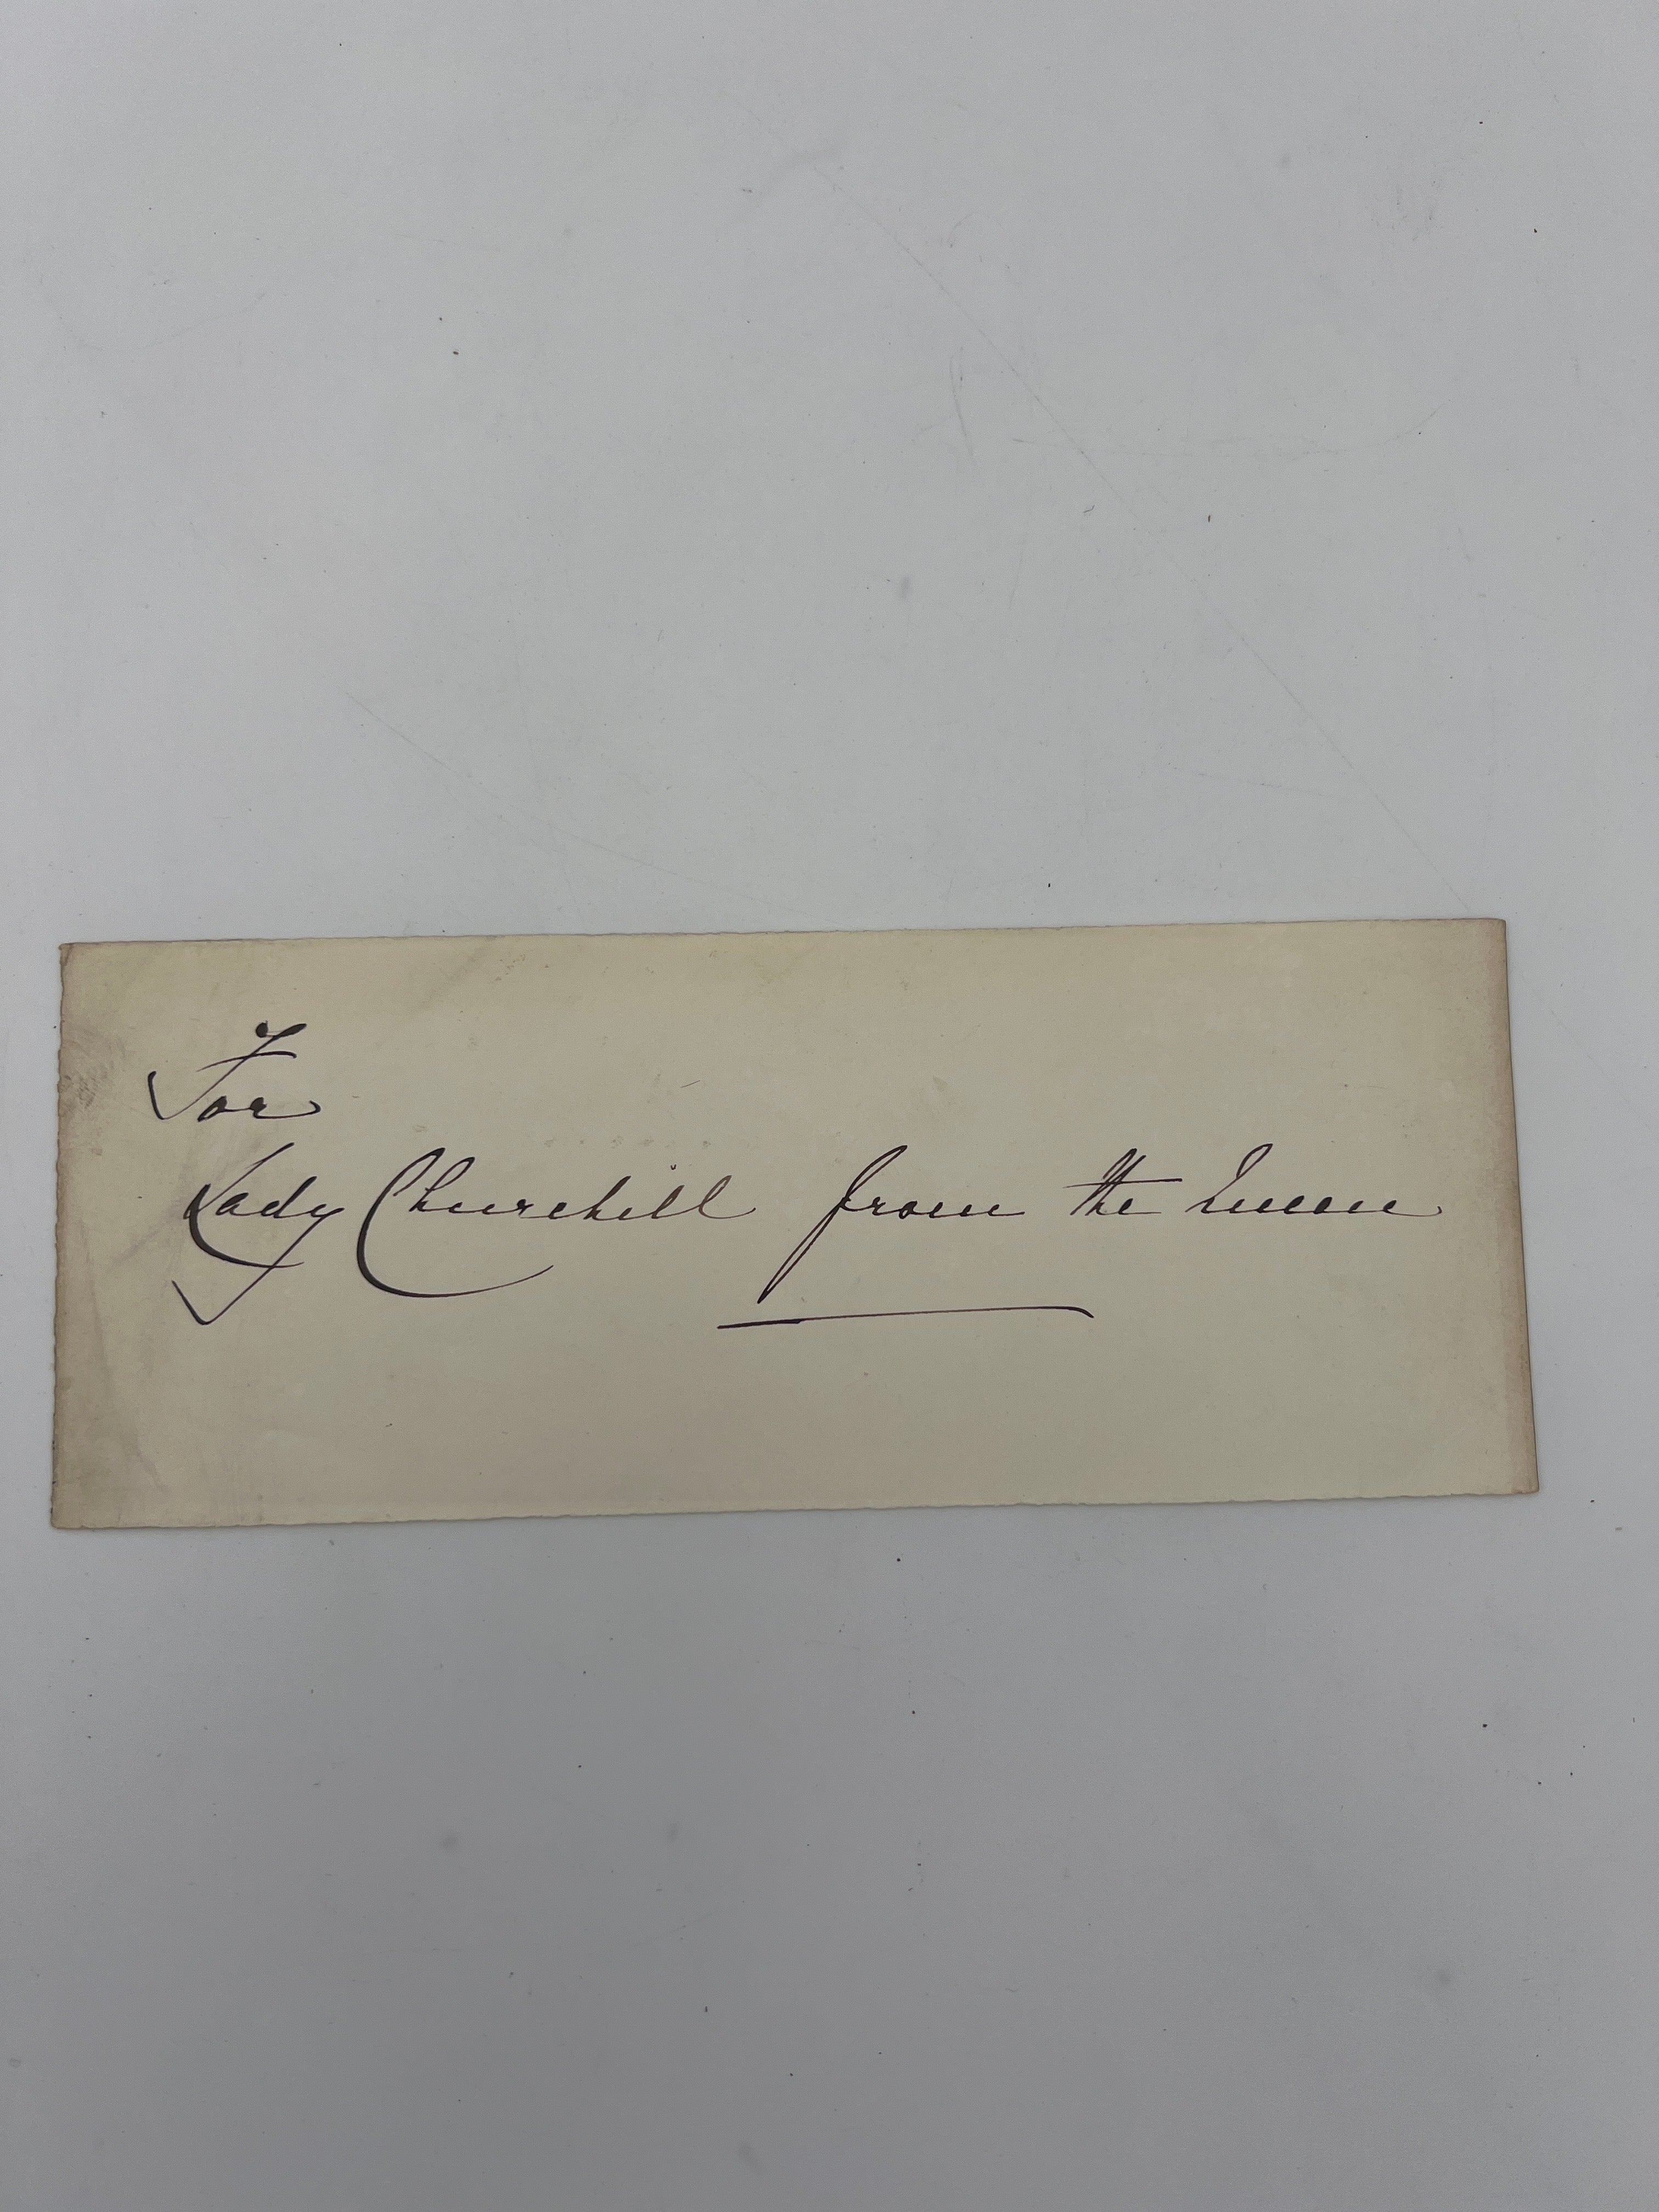 For
Lady Churchill from the Queen